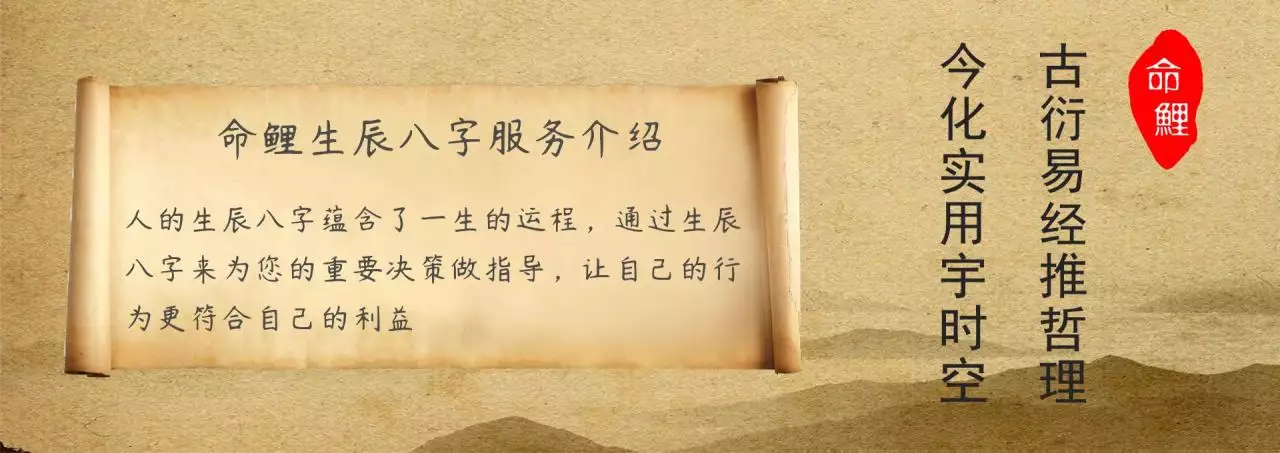 命鲤生辰八字服务介绍
人的生辰八字蕴含了一生的运程，通过生辰
八字来为您的重要决策做指导，让自己的行
为更符合自己的利益
命鲤
古衍易经推哲理
今化实用宇时空